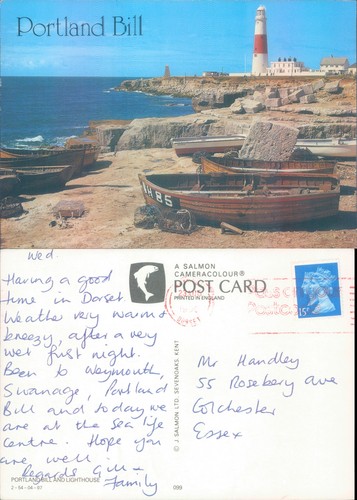 Portland Bill
WH85
Wed.
Having a good
time in Dorset
Weather very warm &
breezy, after a very
wet first night.
Been to Weymouth,
Swanage, Portland
Bill and today we
are at the sea life
Centre. Hope you
are well.
Regards Gill &
Family
PORTLAND BILL AND LIGHTHOUSE
2-54-08-67
A SALMON
CAMERACOLOUR®
POST CARD
PRINTED IN ENGLAND
© J. SALMON LTD. SEVENOAKS. KENT
099
DORSET
15
Mr Handley
55 Rosebery Ave
Colchester
Essex